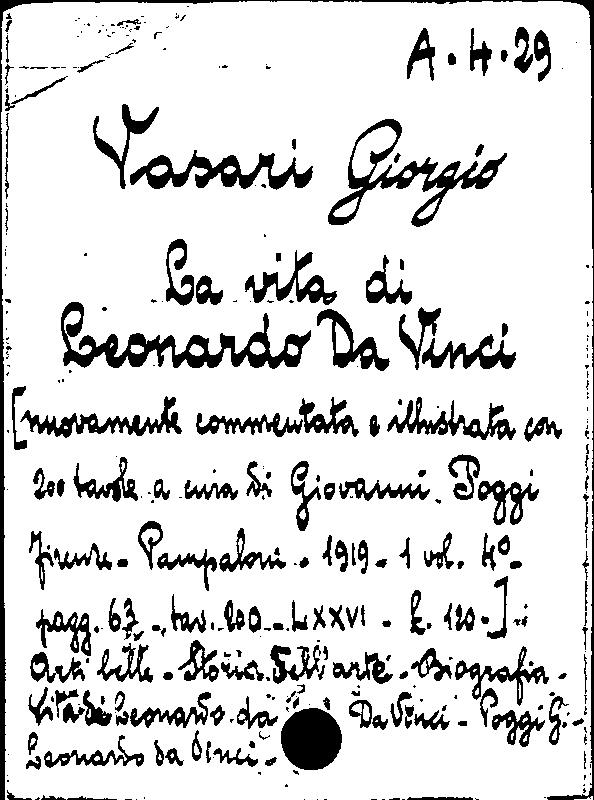 A. 4. 29
Vasari Giorgio
La vita di
Leonardo Da Vinci
[nuovamente commentata e illustrata con
200 tavole a cura di Giovanni Poggi
Firenze - Pampaloni - 1919 - 1 vol. 4º -
pagg. 63 - tav. 200 - LXXVI - £. 120 -]
Arti belle - Storia dell'arte - Biografia -
Vita di Leonardo da Da Vinci - Poggi G. -
Leonardo da Vinci -